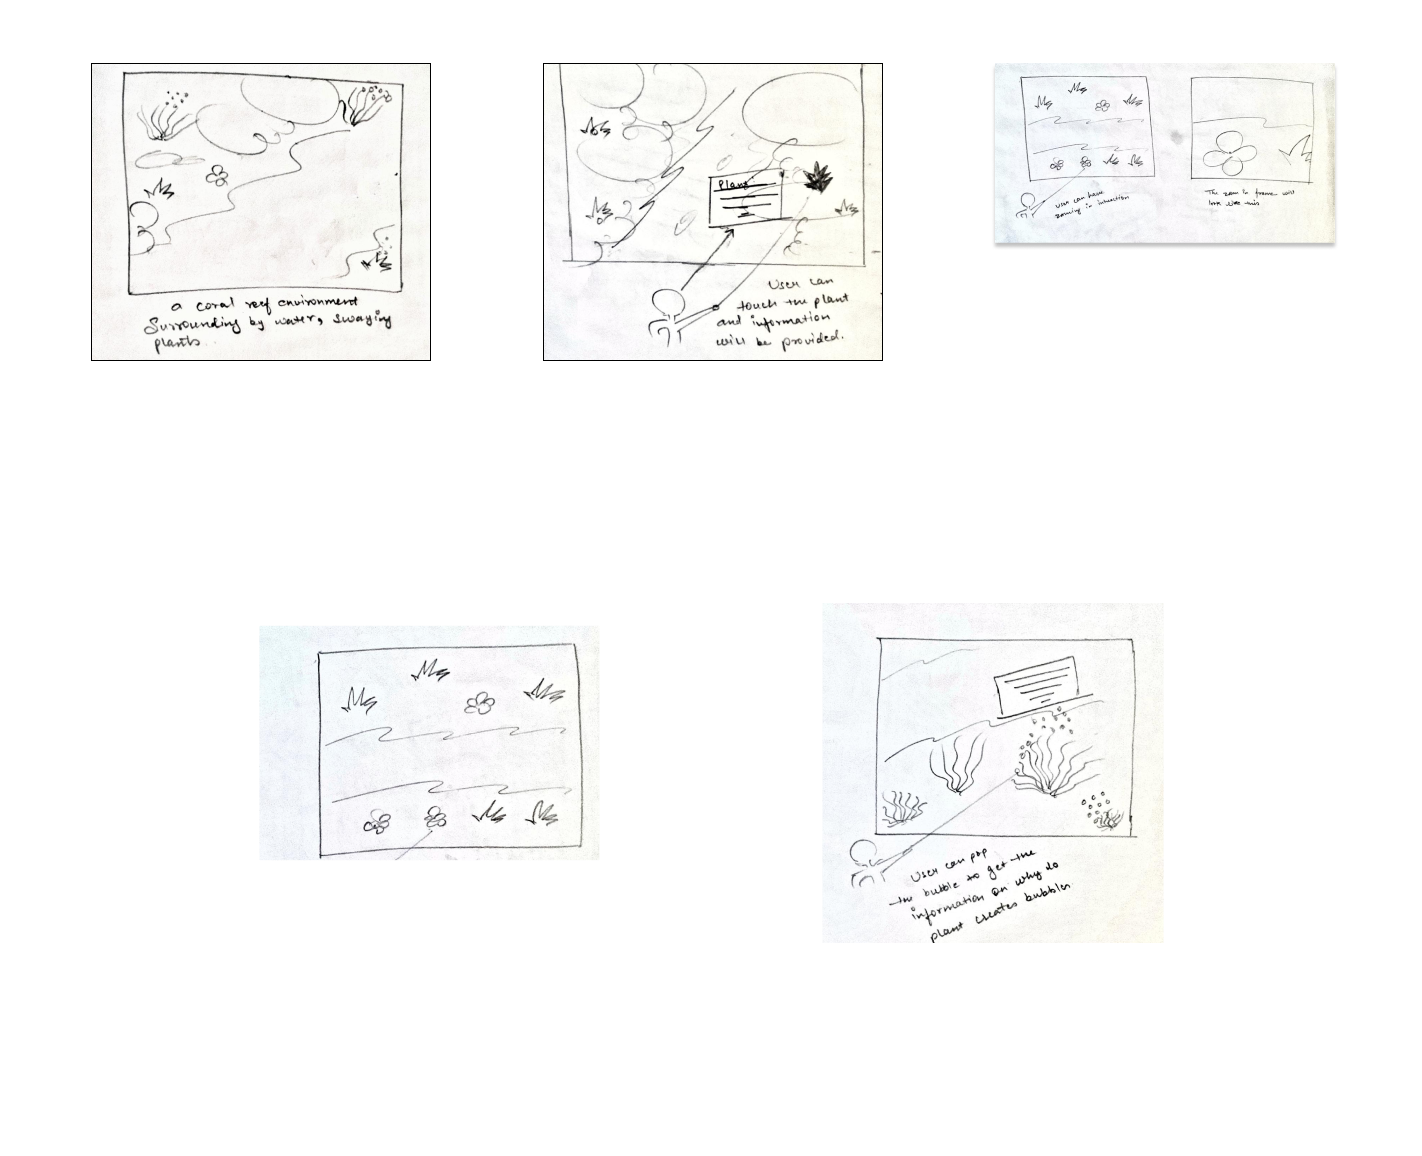 a coral reef environment
Surrounding by water, swaying
plants
Plant
User can
touch the plant
and information
will be provided.
User can have
zooming in intraction
The zoom in frame will
look like this
User can pop
the bubble to get the
information on why do
plant creates bubbles